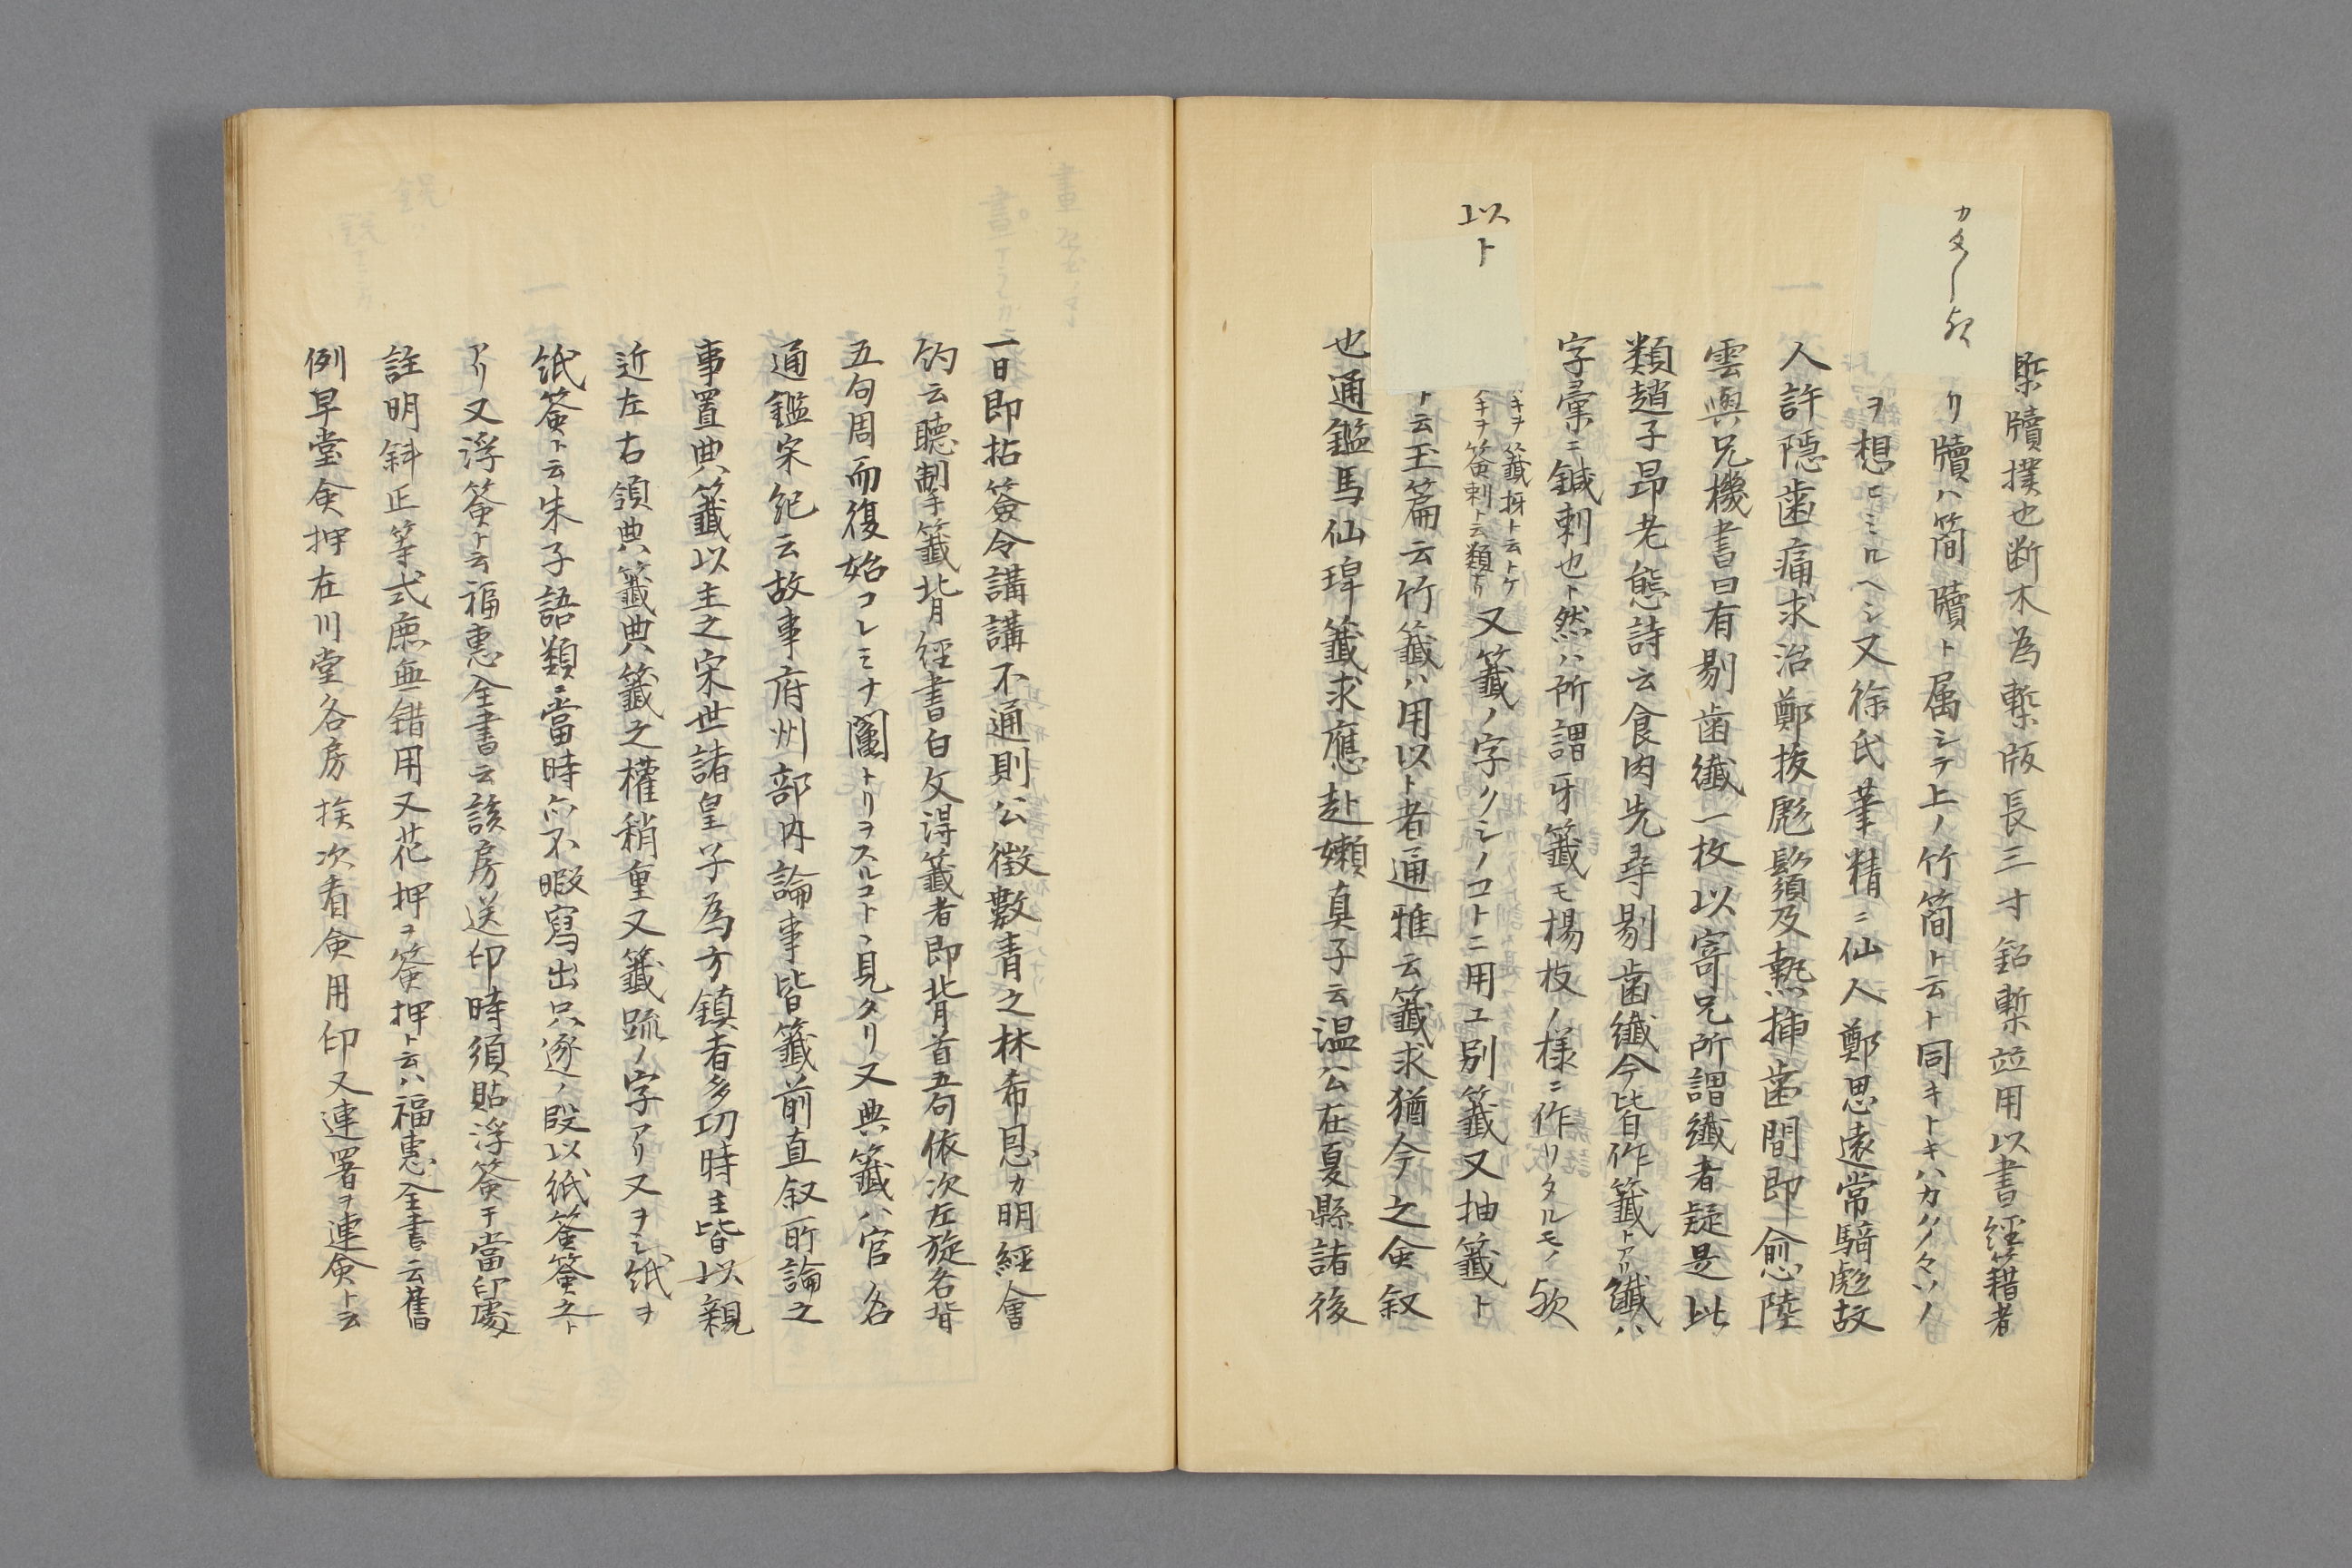 カタ〳〵歟
槧牘撲也断木為槧版長三寸鉛槧並用以書經籍者
リ牘ハ簡牘ト属シテ上ノ竹簡ト云ト同キトキハカク々ソノ
ヲ想ヒミルヘシ又徐氏筆精ニ仙人鄭思遠常騎彪故
人許隠歯痛求治鄭抜彪鬚及熱挿歯間即愈陸
雲與兄機書曰有剔歯纎一枚以寄兄所謂纎者疑是此
類趙子昂老態詩云食肉先尋剔歯纎今皆作籤トアリ纎ハ
字彙ニ鍼刺也ト然ハ所謂牙籤モ楊枝ノ様ニ作リタルモノ欤
以ト
キヲ籤拶ト云トケ
ヌキヲ簽刺ト云類ナリ
又籤ノ字クシノコトニ用ユ別籤又抽籤ト
ト云玉篇云竹籤ハ用以ト者通雅云籤求猶今之僉叙
也通鑑馬仙琕籤求應赴嬾真子云温公在夏縣諸後
一日即拈簽令講講不通則公微數責之林希恩カ明經會
約云聴制手籤背經書白文得籤者即背首五句依次左旋各背
五句周而復始コレミナ鬮トリヲスルコトヽ見タリ又典籤ハ官名
通鑑宋紀云故事府州部内論事皆籤前直叙所論之
事置典籤以主之宋世諸皇子為方鎮者多幼時主皆以親
近左右領典籤典籤之權稍重又籤疏ノ字アリ又ヲシ紙ヲ
紙簽ト云朱子語類ニ當時亦不暇寫出只逐ノ段以紙簽簽之ト
アリ又浮簽ト云福惠全書云該房送印時須貼浮簽于當印處
註明斜正等式庶無錯用又花押ヲ簽押ト云ハ福惠全書云舊
例早堂僉押在川堂各房挨次看僉用印又連署ヲ連僉ト云